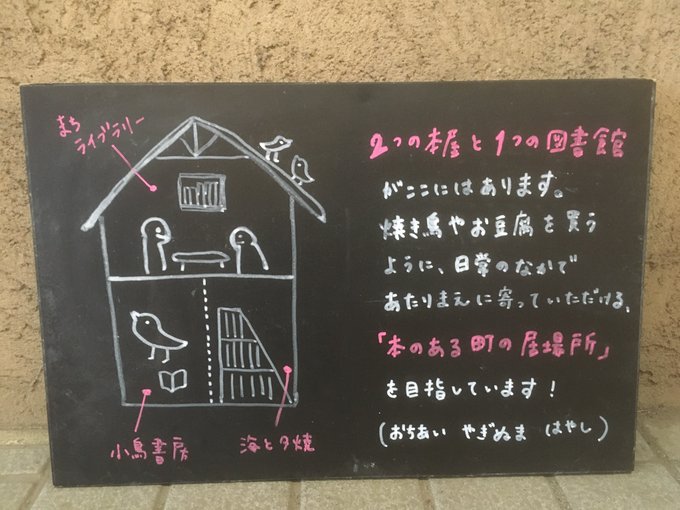 まち
ライブラリー
小鳥書房
海と夕焼
2つの本屋と1つの図書館
がここにはあります。
焼き鳥やお豆腐を買う
ように、日常のなかで
あたりまえに寄っていただける、
「本のある町の居場所」
を目指しています!
(おちあい やぎぬま はやし)